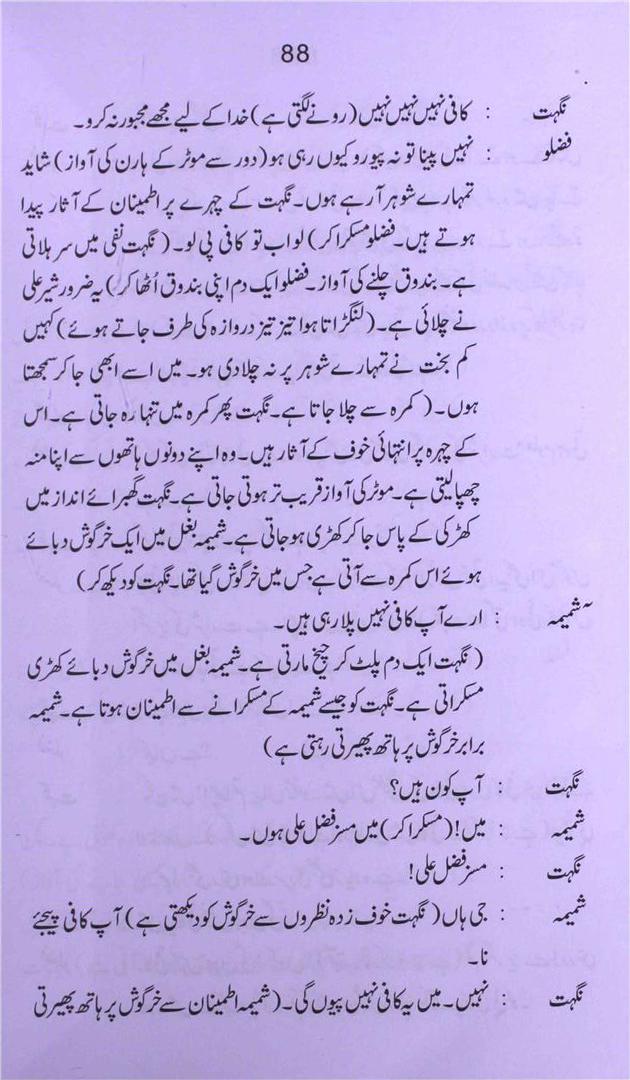 88
نگہت : کافی نہیں نہیں نہیں (رونے لگتی ہے) خدا کے لیے مجھے مجبور نہ کرو۔
فضلو : نہیں پینا تو نہ پیو رو کیوں رہی ہو (دور سے موٹر کے ہارن کی آواز) شاید
تمہارے شوہر آ رہے ہوں۔ نگہت کے چہرے پر اطمینان کے آثار پیدا
ہوتے ہیں۔ فضلو مسکرا کر) لو اب تو کافی پی لو۔ (نگہت نفی میں سر ہلاتی
ہے۔ بندوق چلنے کی آواز۔ فضلو ایک دم اپنی بندوق اُٹھا کر) یہ ضرور شیر علی
نے چلائی ہے۔ (لنگڑاتا ہوا تیز تیز دروازہ کی طرف جاتے ہوئے) کہیں
کم بخت نے تمہارے شوہر پر نہ چلا دی ہو۔ میں اسے ابھی جا کر سمجھتا
ہوں۔ (کمرہ سے چلا جاتا ہے۔ نگہت پھر کمرہ میں تنہا رہ جاتی ہے۔ اس
کے چہرہ پر انتہائی خوف کے آثار ہیں۔ وہ اپنے دونوں ہاتھوں سے اپنا منہ
چھپا لیتی ہے۔ موٹر کی آواز قریب تر ہوتی جاتی ہے۔ نگہت گھبرائے انداز میں
کھڑکی کے پاس جا کر کھڑی ہو جاتی ہے۔ شمیمہ بغل میں ایک خرگوش دبائے
ہوئے اس کمرہ سے آتی ہے جس میں خرگوش گیا تھا۔ نگہت کو دیکھ کر)
شمیمہ : ارے آپ کافی نہیں پلا رہی ہیں۔
(نگہت ایک دم پلٹ کر چیخ مارتی ہے۔ شمیمہ بغل میں خرگوش دبائے کھڑی
مسکراتی ہے۔ نگہت کو جیسے شمیمہ کے مسکرانے سے اطمینان ہوتا ہے۔ شمیمہ
برابر خرگوش پر ہاتھ پھیرتی رہتی ہے)
نگہت : آپ کون ہیں؟
شمیمہ : میں! (مسکرا کر) میں مسز فضل علی ہوں۔
نگہت : مسز فضل علی!
شمیمہ : جی ہاں (نگہت خوف زدہ نظروں سے خرگوش کو دیکھتی ہے) آپ کافی پیجئے
نا۔
نگہت : نہیں۔ میں یہ کافی نہیں پیوں گی۔ (شمیمہ اطمینان سے خرگوش پر ہاتھ پھیرتی